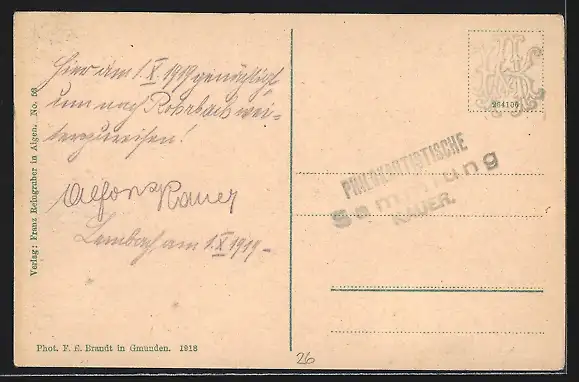 Hier am 1. X. 1919 genächtigt
um nach Rohrbach wei-
terzureisen!
Alfons Kauer
Lembach, am 1. X 1919-
Verlag: Franz Reingruber in Aigen. No. 50
Phot. F. E. Brandt in Gmunden. 1918
264106
PHILOKARTISTISCHE
Sammlung
KAUER.
26